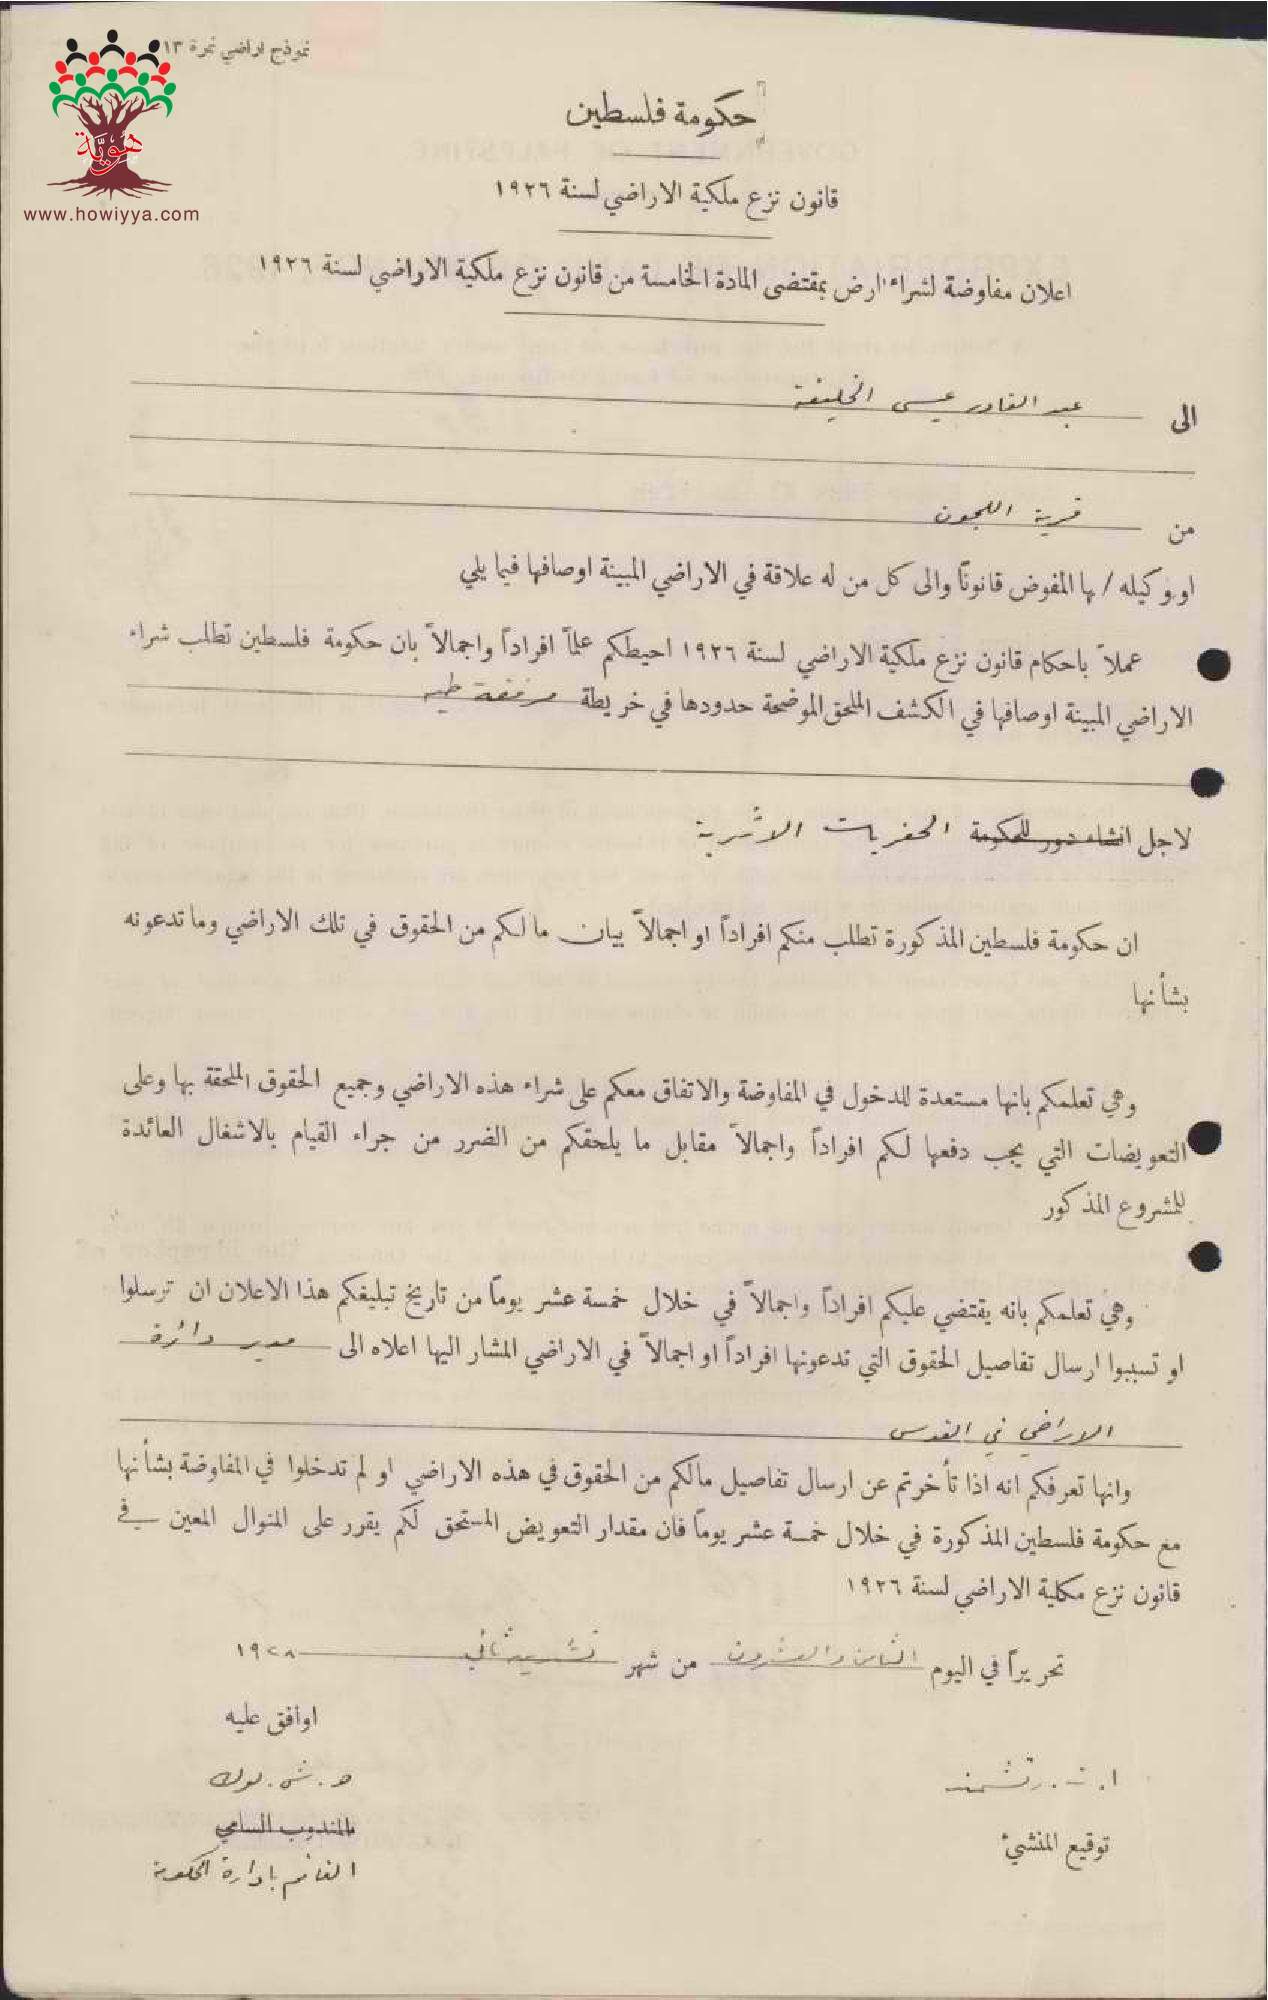 نموذج اراضي نمرة ١٣
هوية
www.howiyya.com
حكومة فلسطين
قانون نزع ملكية الاراضي لسنة ١٩٢٦
اعلان مفاوضة لشراء ارض بمقتضى المادة الخامسة من قانون نزع ملكية الاراضي لسنة ١٩٢٦
الى عبد القادر عيسى الخليفة
من قرية اللجون
او وكيله / ها المفوض قانونًا والى كل من له علاقة في الاراضي المبينة اوصافها فيما يلي
عملاً باحكام قانون نزع ملكية الاراضي لسنة ١٩٢٦ احيطكم علماً افراداً واجمالاً بان حكومة فلسطين تطلب شراء
الاراضي المبينة اوصافها في الكشف الملحق الموضحة حدودها في خريطة مرفقة طيه
لاجل انشاء دور للحكومة الحفريات الاثرية
ان حكومة فلسطين المذكورة تطلب منكم افراداً او اجمالاً بيان ما لكم من الحقوق في تلك الاراضي وما تدعونه
بشأنها
وهي تعلمكم بانها مستعدة للدخول في المفاوضة والاتفاق معكم على شراء هذه الاراضي وجميع الحقوق الملحقة بها وعلى
التعويضات التي يجب دفعها لكم افراداً واجمالاً مقابل ما يلحقكم من الضرر من جراء القيام بالاشغال العائدة
للمشروع المذكور
وهي تعلمكم بانه يقتضي عليكم افراداً واجمالاً في خلال خمسة عشر يوماً من تاريخ تبليغكم هذا الاعلان ان ترسلوا
او تسببوا ارسال تفاصيل الحقوق التي تدعونها افراداً او اجمالاً في الاراضي المشار اليها اعلاه الى مدير دائرة
الاراضي في القدس
وانها تعرفكم انه اذا تأخرتم عن ارسال تفاصيل مالكم من الحقوق في هذه الاراضي او لم تدخلوا في المفاوضة بشأنها
مع حكومة فلسطين المذكورة في خلال خمسة عشر يوماً فان مقدار التعويض المستحق لكم يقرر على المنوال المعين في
قانون نزع مكلية الاراضي لسنة ١٩٢٦
تحريراً في اليوم الثامن والعشرون من شهر تشرين ثاني ١٩٢٨
اوافق عليه
ا. ت. رتشمند
ه. ش. لوك
توقيع المنشئ
المندوب السامي
القائم بادارة الحكومة